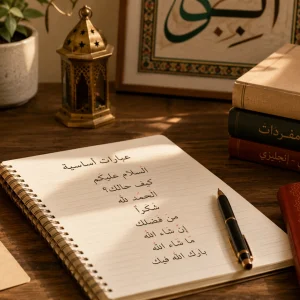 عبارات أساسية
السلام عليكم
كيف حالك؟
الحمد لله
شكراً
من فضلك
إن شاء الله
ما شاء الله
بارك الله فيك
مفردات
إنجليزي